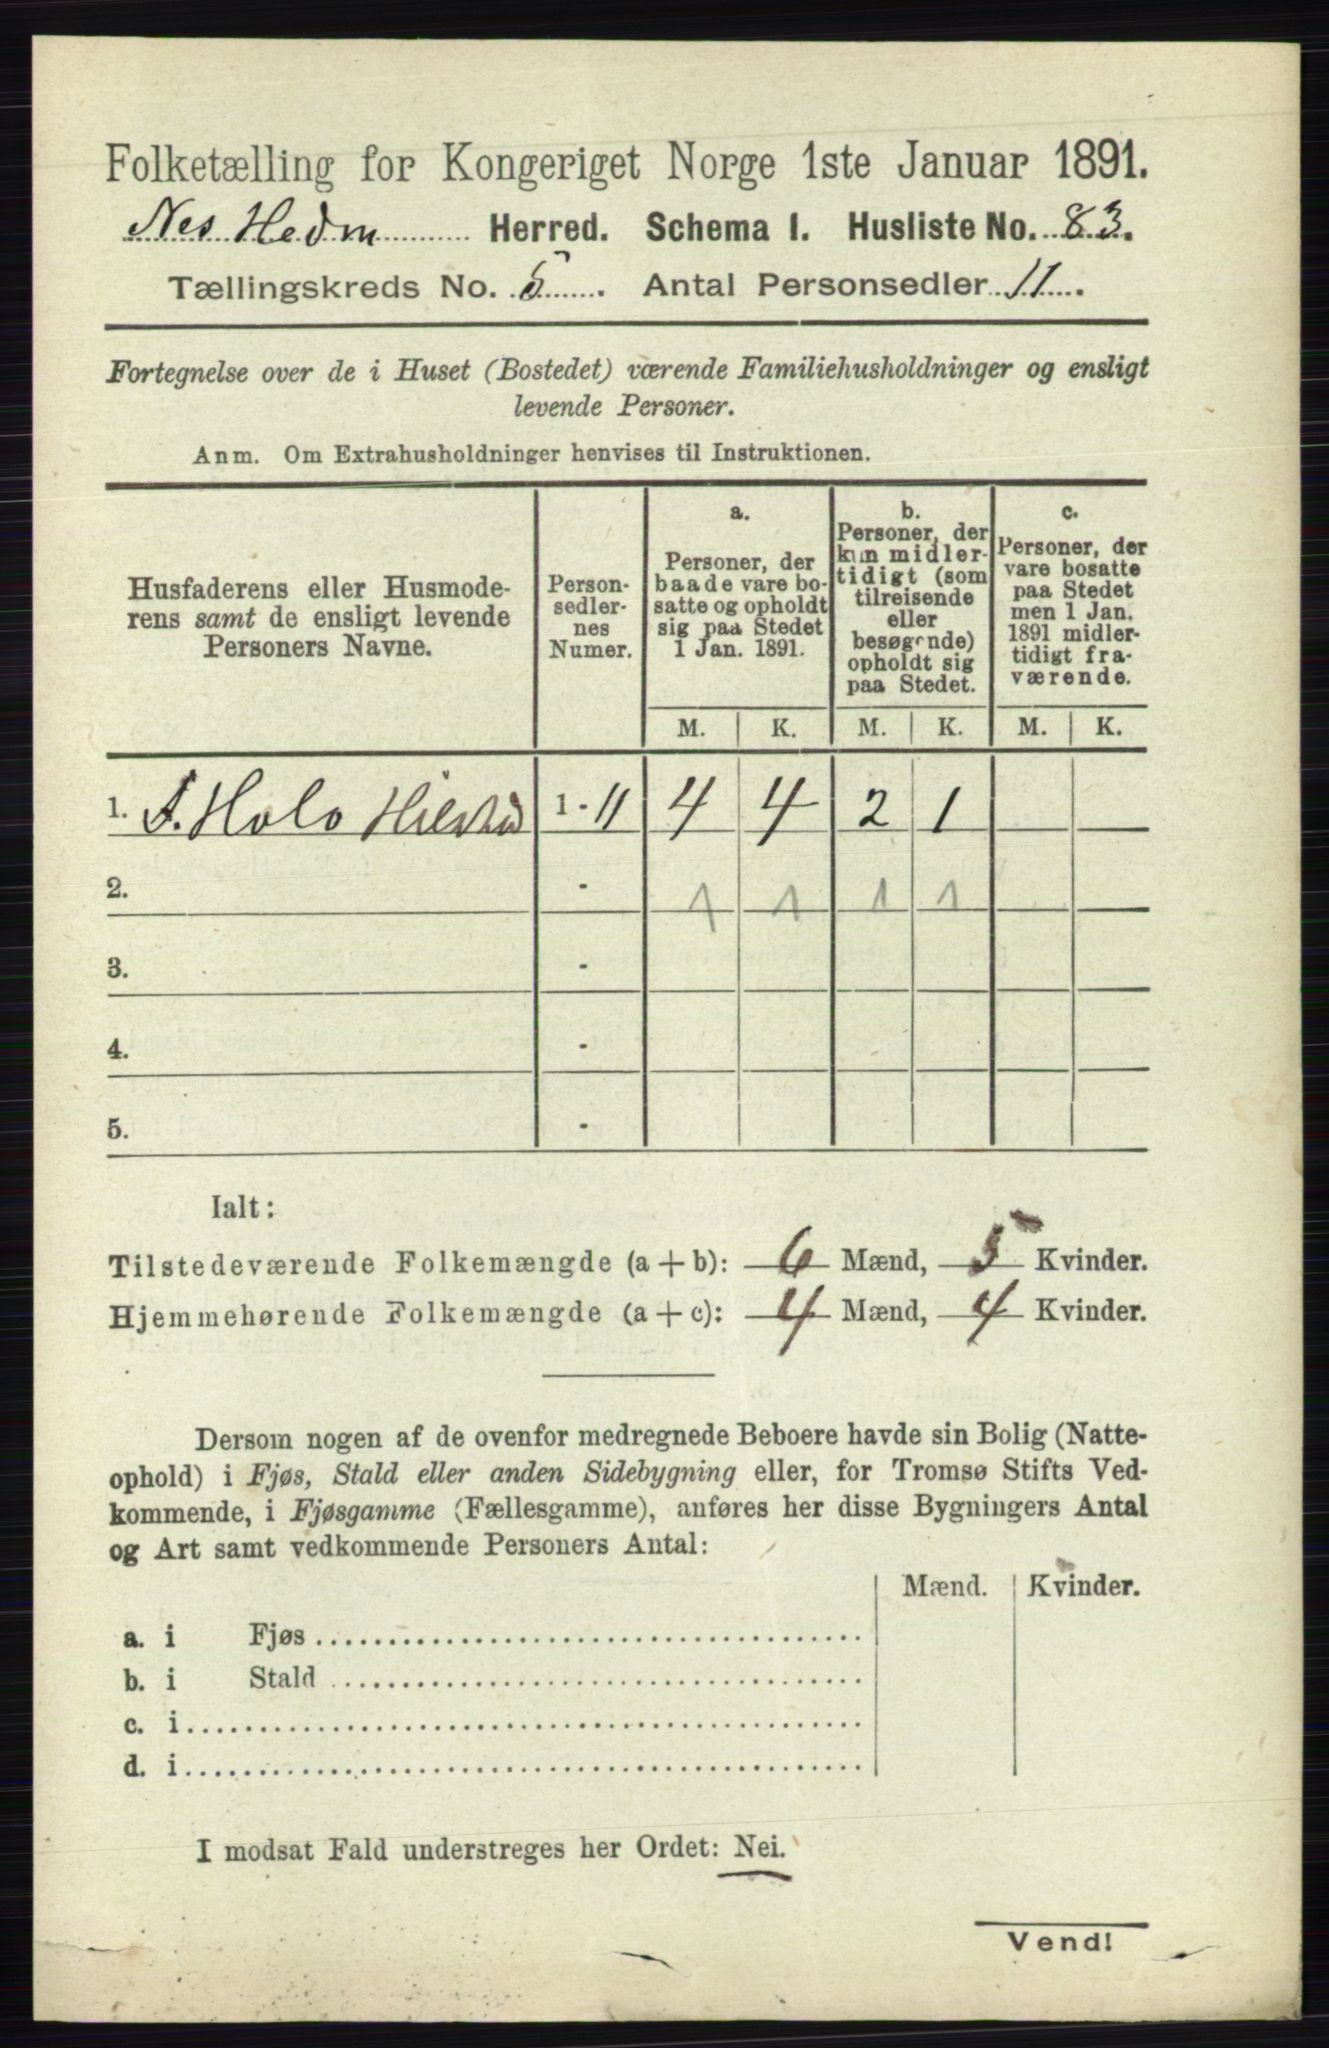 Folketælling for Kongeriget Norge 1ste Januar 1891.
Nes Hedm Herred. Schema I. Husliste No. 83.
Tællingskreds No. 5. Antal Personsedler 11.
Fortegnelse over de i Huset (Bostedet) værende Familiehusholdninger og ensligt
levende Personer.
Anm. Om Extrahusholdninger henvises til Instruktionen.
Husfaderens eller Husmode-
rens samt de ensligt levende
Personers Navne.
Person-
sedler-
nes
Numer.
a.
Personer, der
baade vare bo-
satte og opholdt
sig paa Stedet
1 Jan. 1891.
b.
Personer, der
kun midler-
tidigt (som
tilreisende
eller
besøgende)
opholdt sig
paa Stedet.
c.
Personer, der
vare bosatte
paa Stedet
men 1 Jan.
1891 midler-
tidigt fra-
værende.
M. K. M. K. M. K.
1. F. Holo 1 - 11 4 4 2 1
2. - 1 1 1 1
3. -
4. -
5. -
Ialt:
Tilstedeværende Folkemængde (a + b): 6 Mænd, 5 Kvinder.
Hjemmehørende Folkemængde (a + c): 4 Mænd, 4 Kvinder.
Dersom nogen af de ovenfor medregnede Beboere havde sin Bolig (Natte-
ophold) i Fjøs, Stald eller anden Sidebygning eller, for Tromsø Stifts Ved-
kommende, i Fjøsgamme (Fællesgamme), anføres her disse Bygningers Antal
og Art samt vedkommende Personers Antal:
Mænd. Kvinder.
a. i Fjøs
b. i Stald
c. i
d. i
I modsat Fald understreges her Ordet: Nei.
Vend!